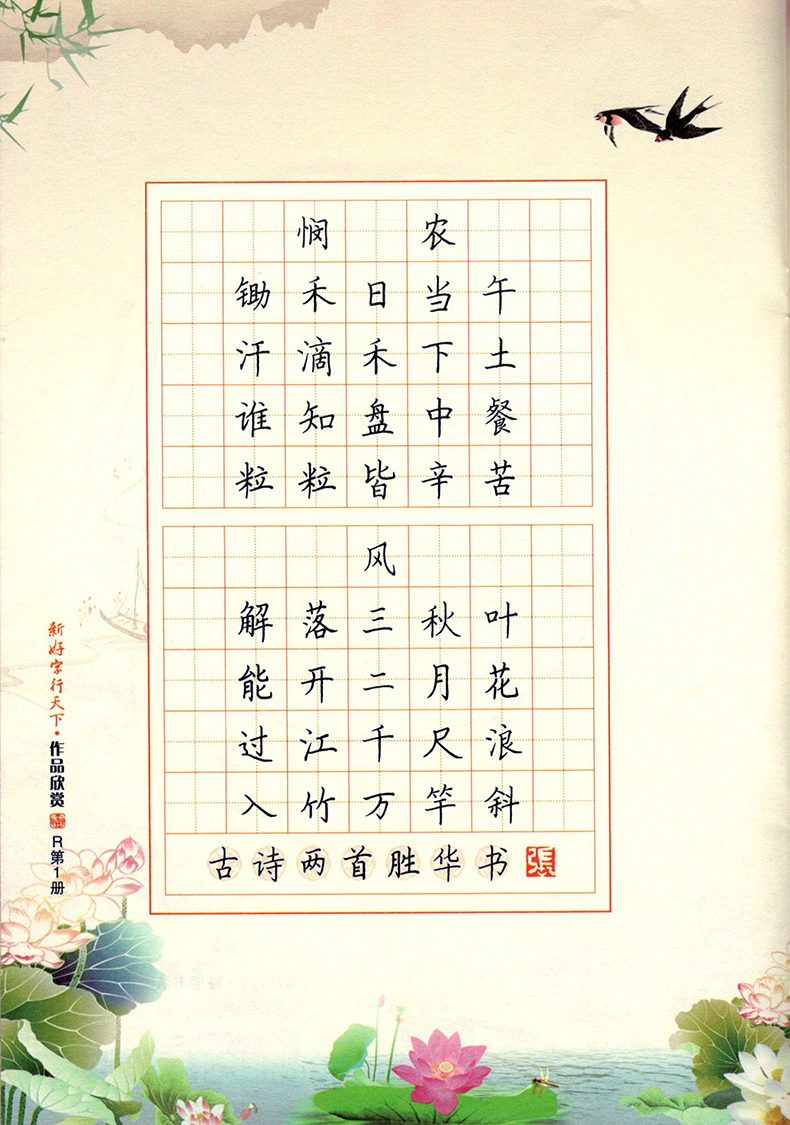 悯农
锄禾日当午
汗滴禾下土
谁知盘中餐
粒粒皆辛苦
风
解落三秋叶
能开二月花
过江千尺浪
入竹万竿斜
古诗两首胜华书
張
新好字行天下·作品欣赏
R第1册